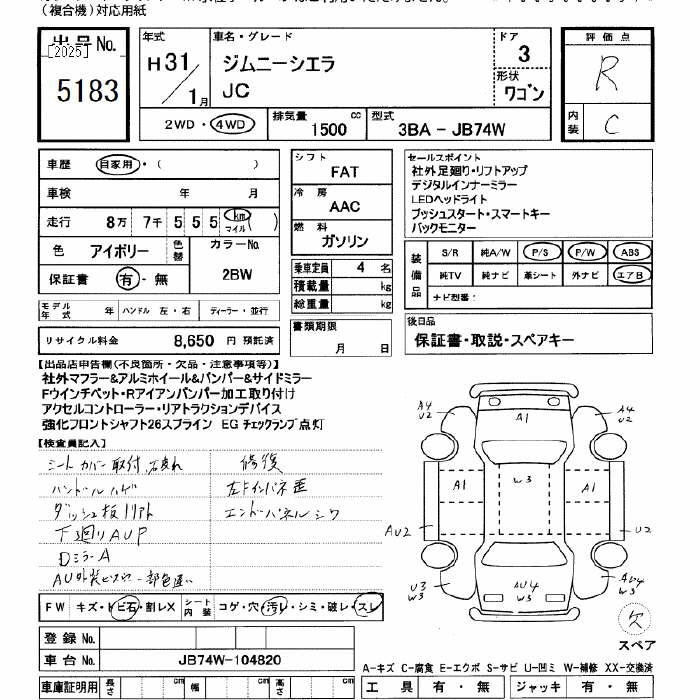 (複合機)対応用紙
出品No. [2025] 5183
年式 H31/1月
車名・グレード ジムニーシエラ JC
ドア 3
形状 ワゴン
評価点 R
内装 C
2WD・4WD 排気量 1500 cc 型式 3BA - JB74W
車歴 自家用・( )
車検 年 月
走行 8万 7千 5 5 5 km マイル ( )
色 アイボリー 色替 カラーNo. 2BW
保証書 有・無
モデル年式 年 ハンドル 左・右 ディーラー・並行
リサイクル料金 8,650 円 預託済
シフト FAT
冷房 AAC
燃料 ガソリン
乗車定員 4 名
積載量 kg
総重量 kg
書類期限 月 日
セールスポイント
社外足廻り・リフトアップ
デジタルインナーミラー
LEDヘッドライト
プッシュスタート・スマートキー
バックモニター
装備品 S/R 純A/W P/S P/W ABS
純TV 純ナビ 革シート 外ナビ エアB
ナビ型番:
後日品
保証書・取説・スペアキー
【出品店申告欄(不良箇所・欠品・注意事項等)】
社外マフラー&アルミホイール&バンパー&サイドミラー
Fウインチベット・Rアイアンバンパー加工取り付け
アクセルコントローラー・リアトラクションデバイス
強化フロントシャフト26スプライン EGチェックランプ点灯
【検査員記入】
シートカバー取付、汚れ
ハンドルハゲ
ダッシュ板リアト
下廻りAUP
DミラーA
修復
左Fインパネ歪
エンドパネルシワ
A4
U2
A1
A4
U2
A1
W3
A1
AU2
U2
U3
W3
AU4
W3
AU4
W3
欠
スペア
FW キズ・トビ石・割レX シート内装 コゲ・穴・汚レ・シミ・破レ・スレ
登録No.
車台No. JB74W-104820
A-キズ C-腐食 E-エクボ S-サビ U-凹ミ W-補修 XX-交換済
車庫証明用 長さ cm 幅 cm 高さ cm
工具 有・無 ジャッキ 有・無